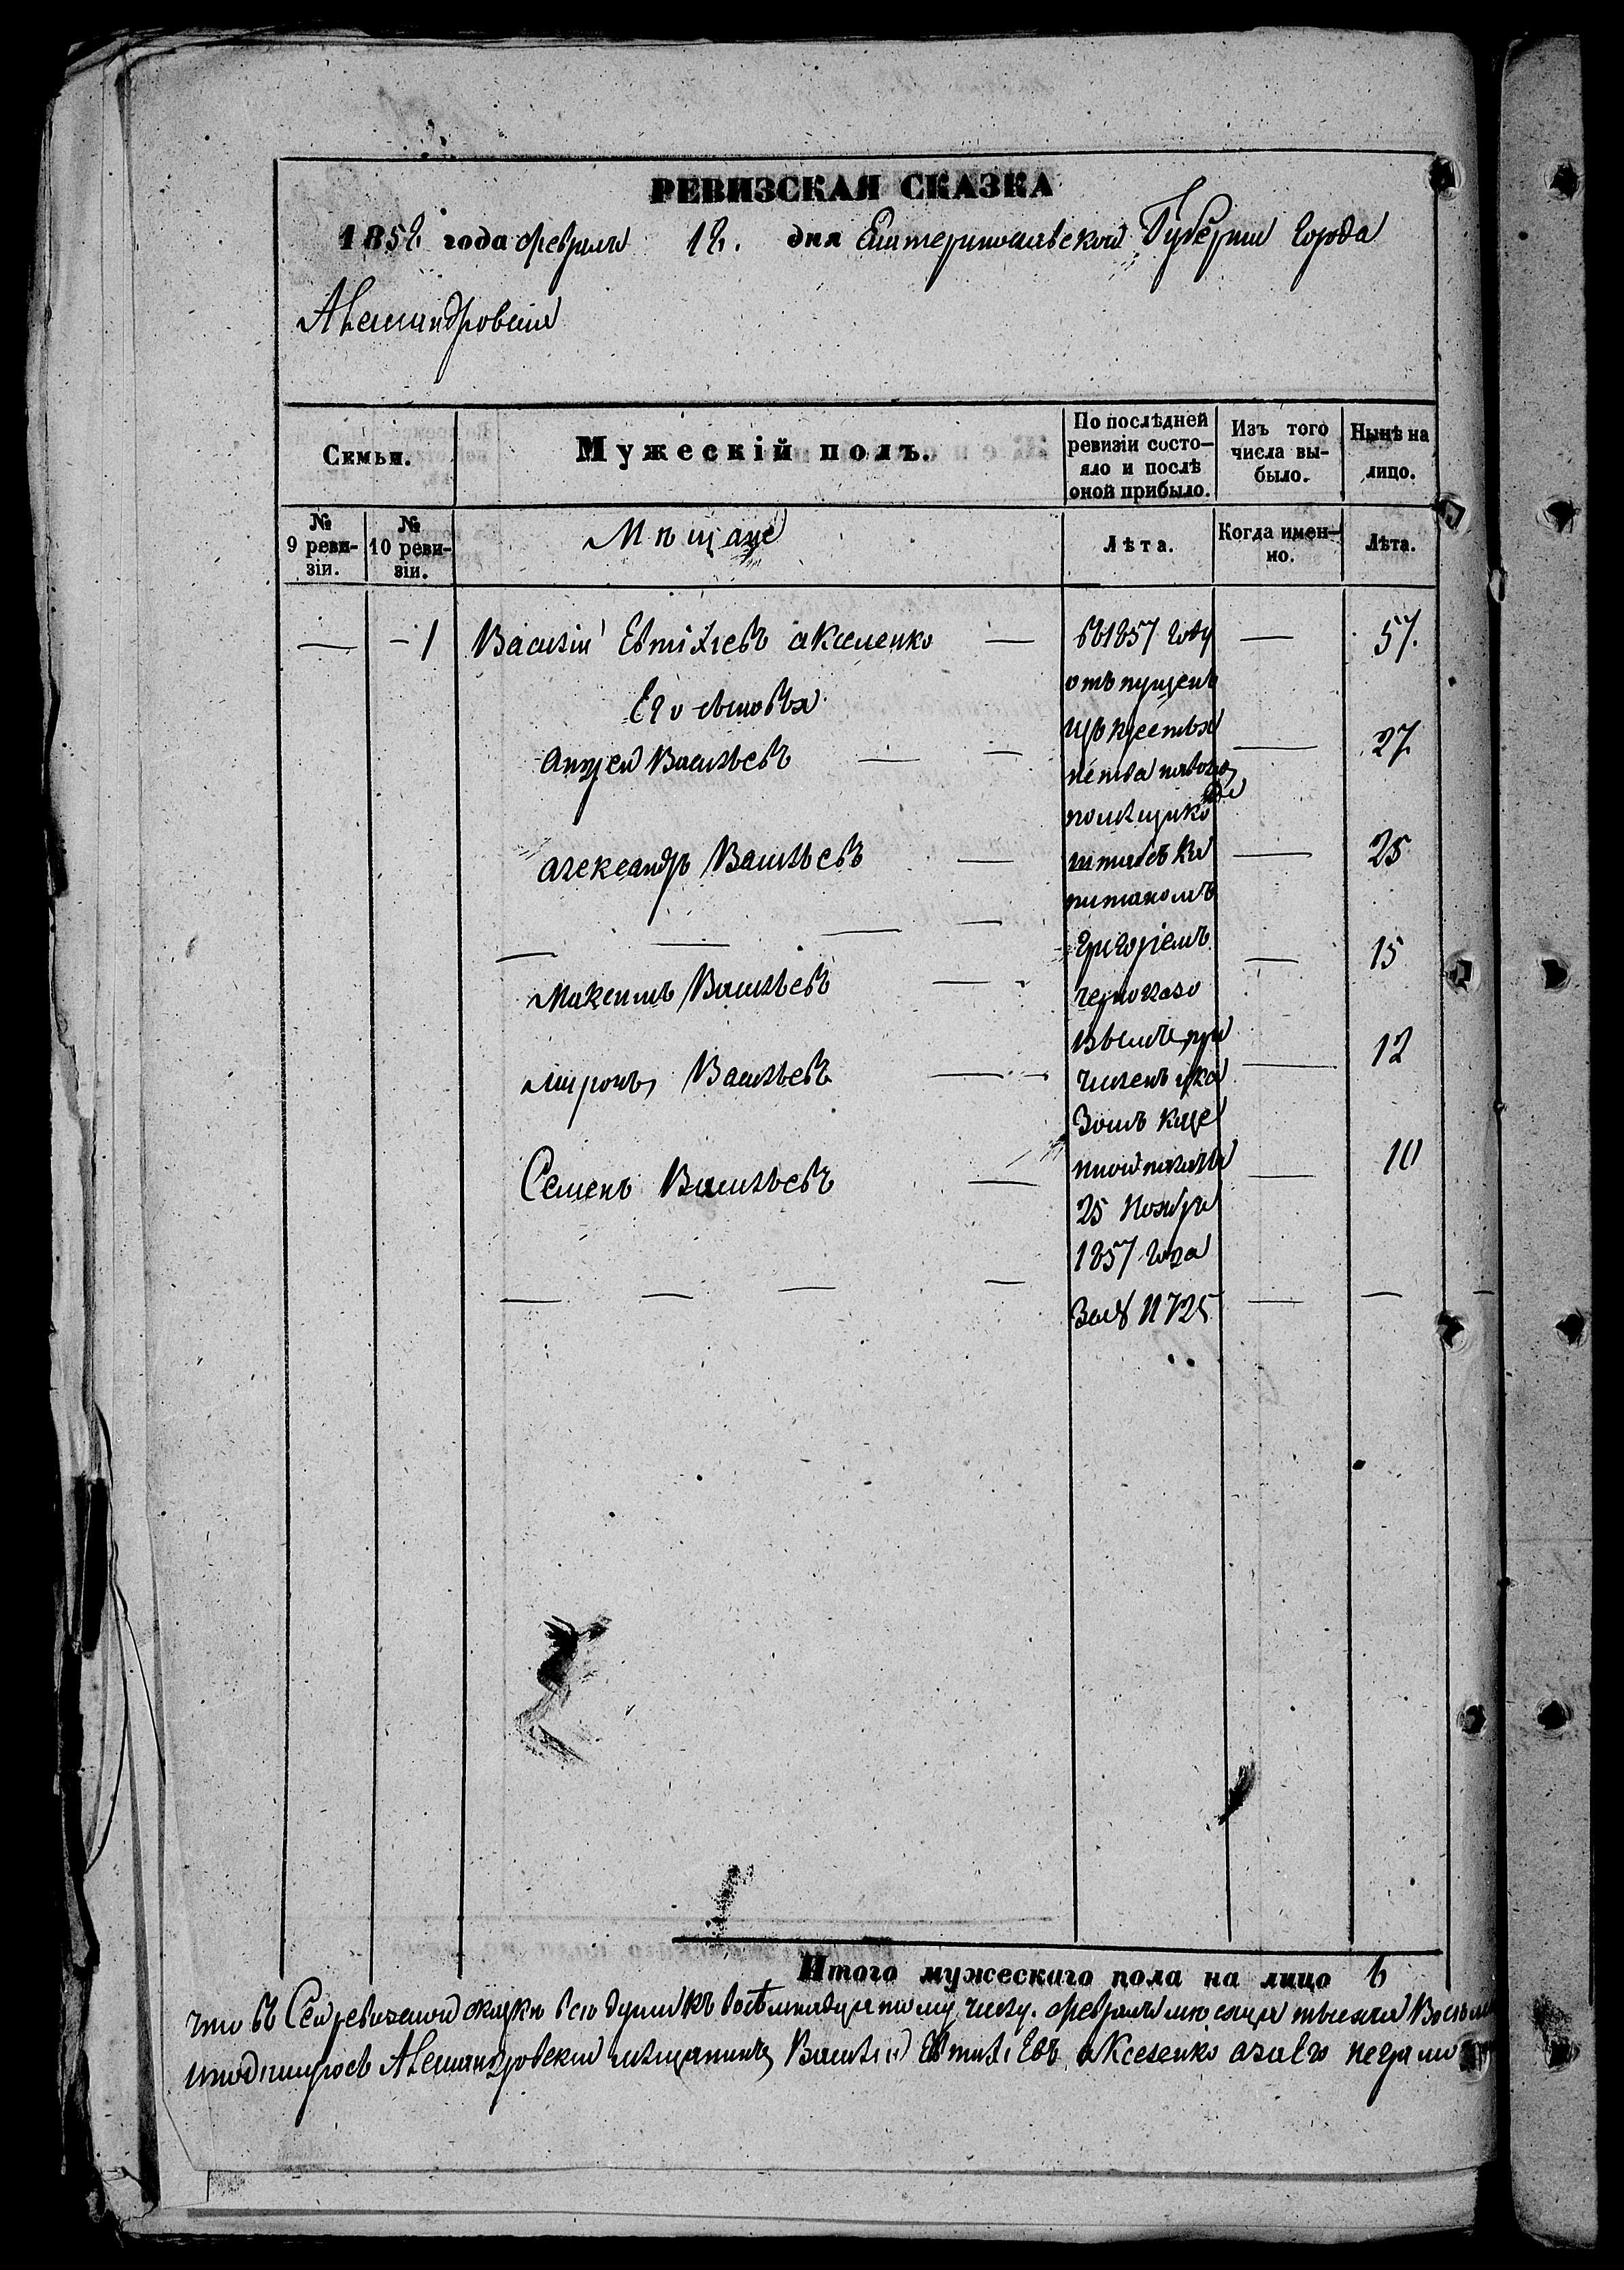 РЕВИЗСКАЯ СКАЗКА
1858 года февраля 18. дня Екатеринославской Губерніи города
Александровска
Семьи.
Мужескій полъ.
По послѣдней ревизіи состо-
яло и послѣ оной прибыло.
Изъ того числа вы-
было.
Нынѣ на лицо.
№ 9 реви-
зіи.
№ 10 реви-
зіи.
Мѣщане
Лѣта.
Когда имен-
но.
Лѣта.
— 1 Василій Евтихіевъ Акселенко — въ 1857 году — 57.
отъ пущенъ
Его сыновья
Андрей Васильевъ — — 27
помѣщико
Александръ Васильевъ — штабсъ ка — 25
питаномъ
Григоріемъ — 15
Максимъ Васильевъ — черноглазо
вымъ, при
Миронъ Васильевъ — численъ ука — 12
зомъ казе
Семенъ Васильевъ — нной палаты — 10
25 Ноября
1857 года
за № 11725
Итого мужескаго пола на лицо 6
что въ Сей ревизской скаски всю души къ восѣмнадцатому числу. февраля мѣсяца тысяча Восьм
Александровскій мѣщанинъ Василій Евтихіевъ Акселенко а за его неграмо